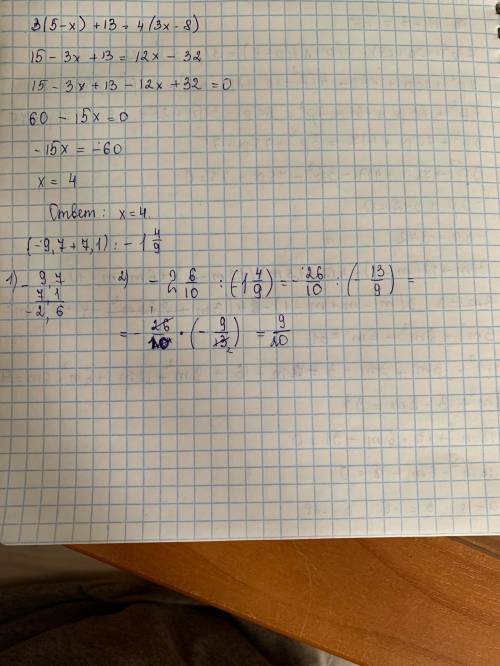 3(5-x) + 13 = 4(3x-8)
15 - 3x + 13 = 12x - 32
15 - 3x + 13 - 12x + 32 = 0
60 - 15x = 0
-15x = -60
x = 4
Ответ: x = 4.
(-9,7 + 7,1) : -1 4/9
1) - 9,7
7,1
-2,6
2) -2 6/10 : (-1 4/9) = -26/10 : (-13/9) =
= -26/10 · (-9/13) = 9/10